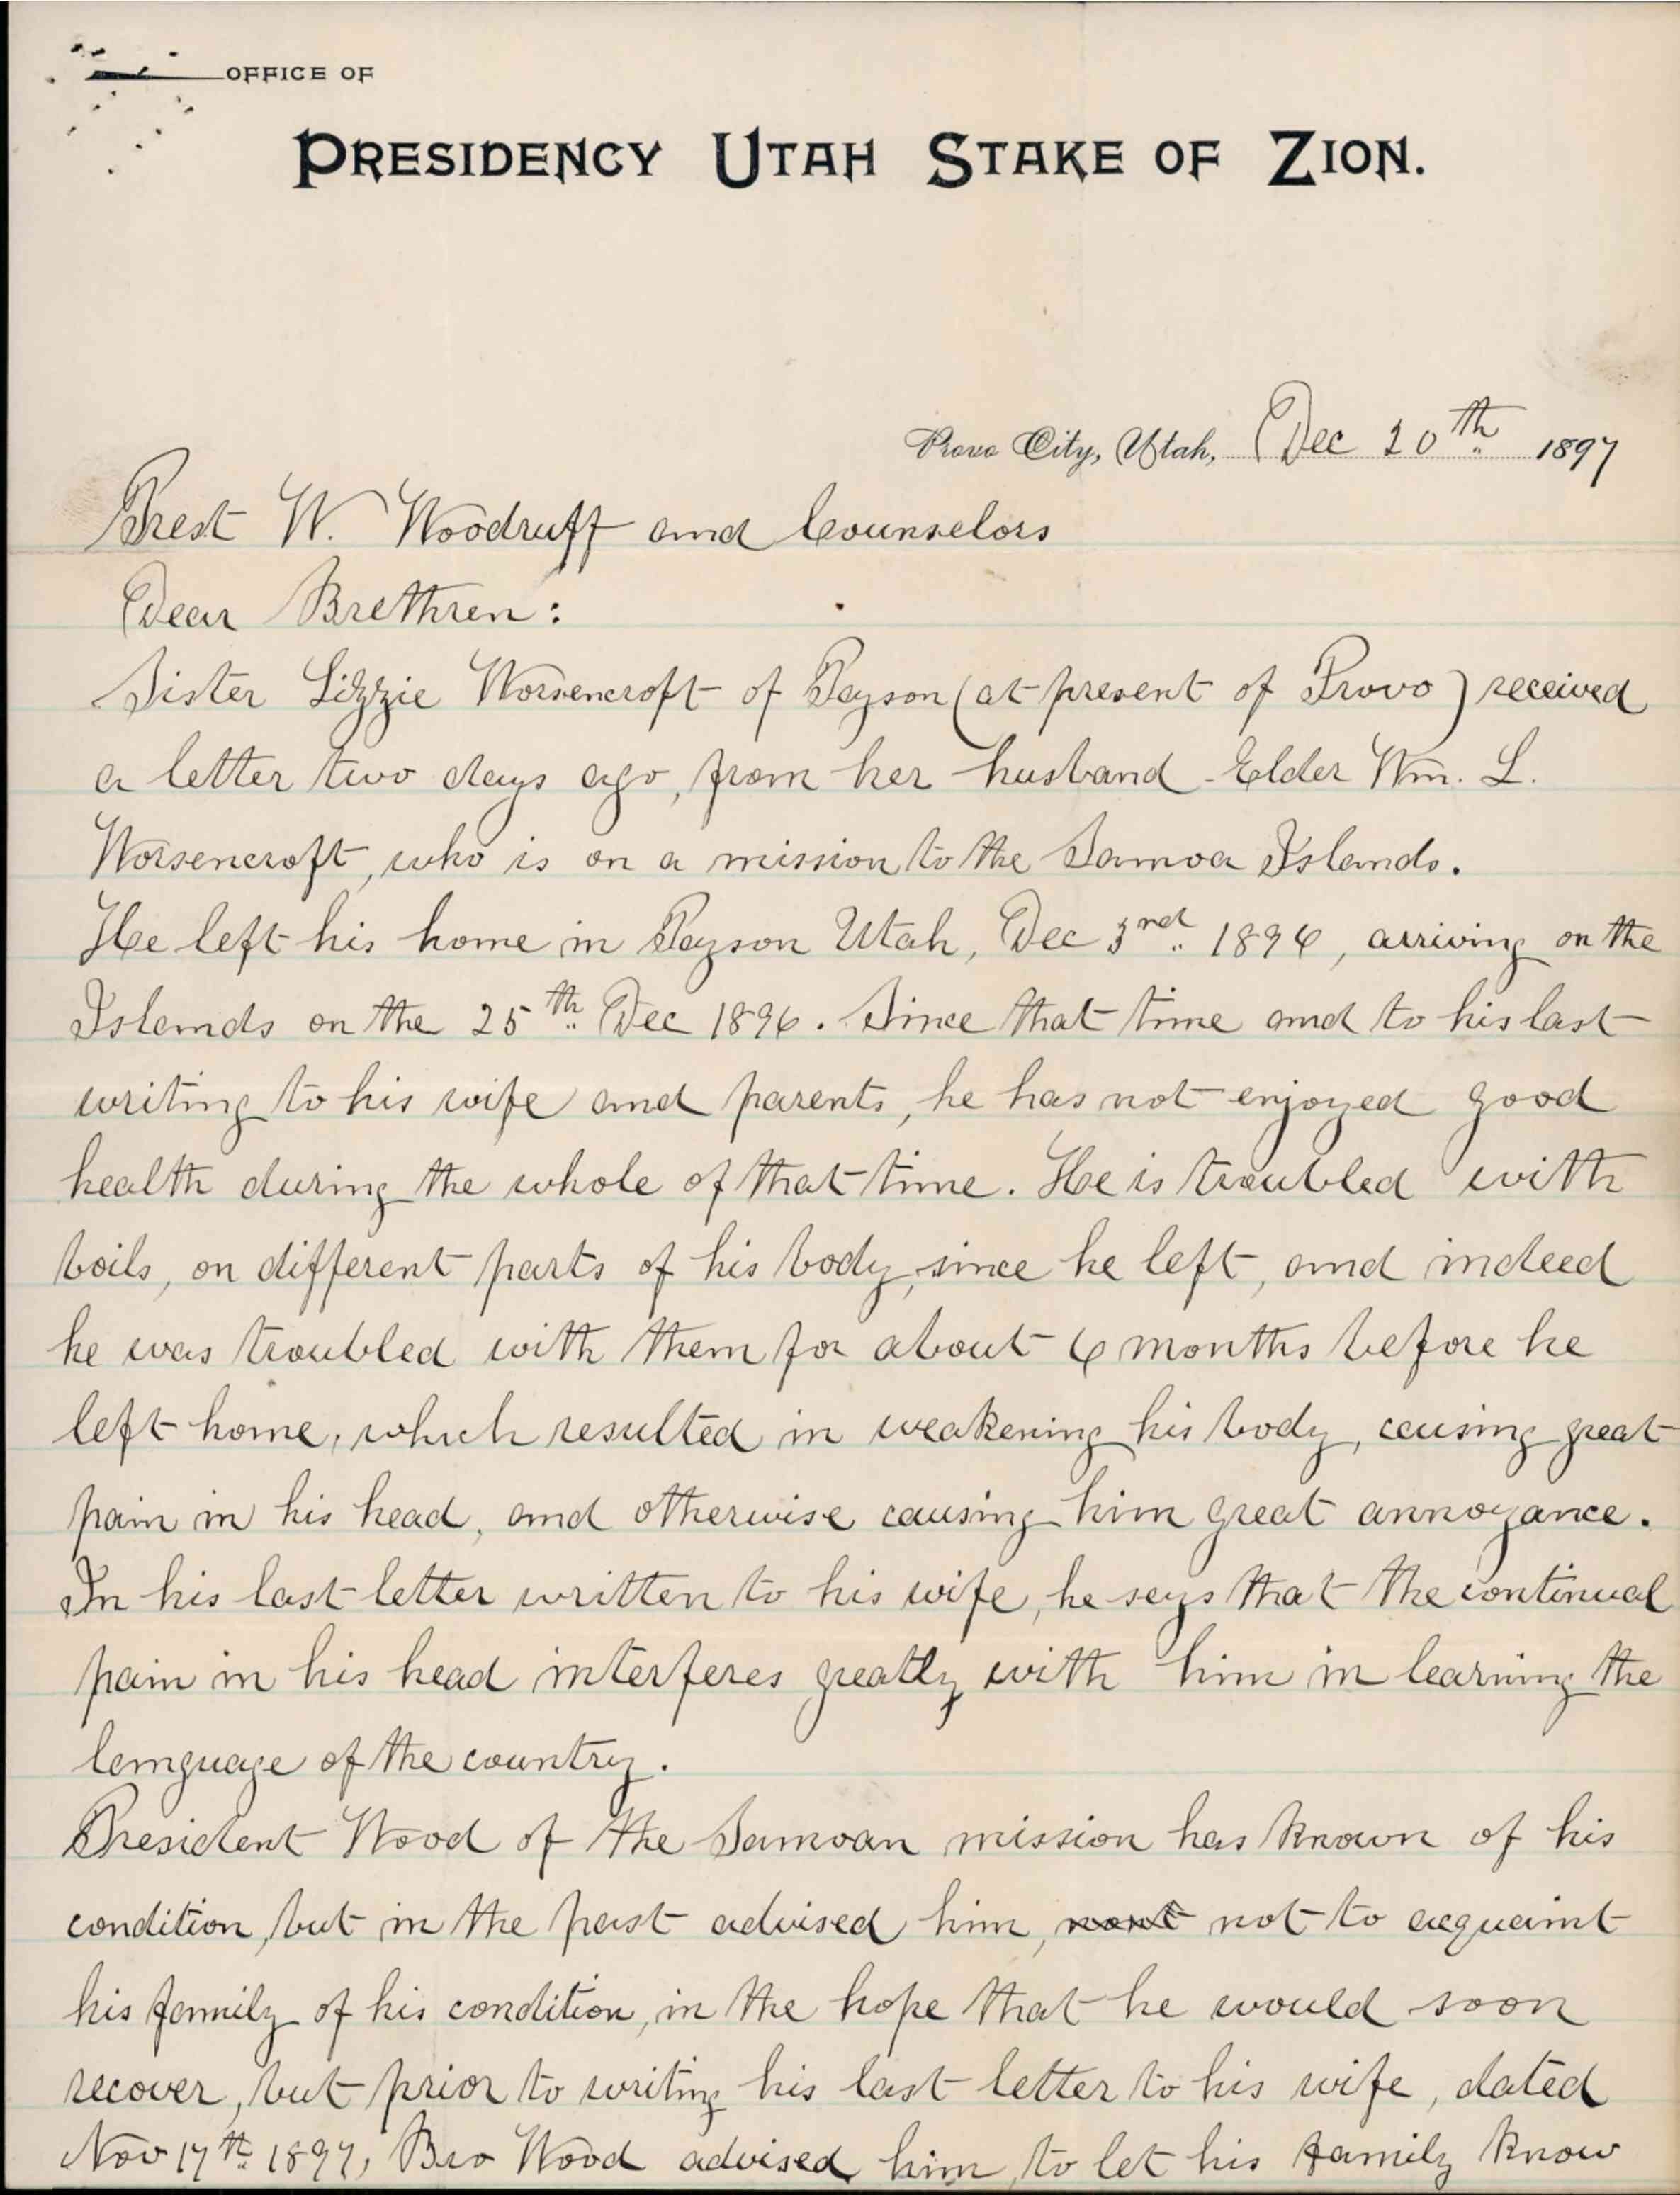 OFFICE OF
PRESIDENCY UTAH STAKE OF ZION.
Provo City, Utah, Dec 20th 1897
Prest W. Woodruff and Counselors
Dear Brethren:
Sister Lizzie Worsencroft of Payson (at present of Provo) received
a letter two days ago, from her husband Elder Wm. L.
Worsencroft, who is on a mission to the Samoa Islands.
He left his home in Payson Utah, Dec 3rd 1896, arriving on the
Islands on the 25th Dec 1896. Since that time and to his last
writing to his wife and parents, he has not enjoyed good
health during the whole of that time. He is troubled with
boils, on different parts of his body, since he left, and indeed
he was troubled with them for about 6 months before he
left home, which resulted in weakening his body, causing great
pain in his head, and otherwise causing him great annoyance.
In his last letter written to his wife, he says that the continual
pain in his head interferes greatly with him in learning the
language of the country.
President Wood of the Samoan mission has known of his
condition, but in the past advised him, not to acquaint
his family of his condition, in the hope that he would soon
recover, but prior to writing his last letter to his wife, dated
Nov 17th 1897, Bro Wood advised him, to let his family know